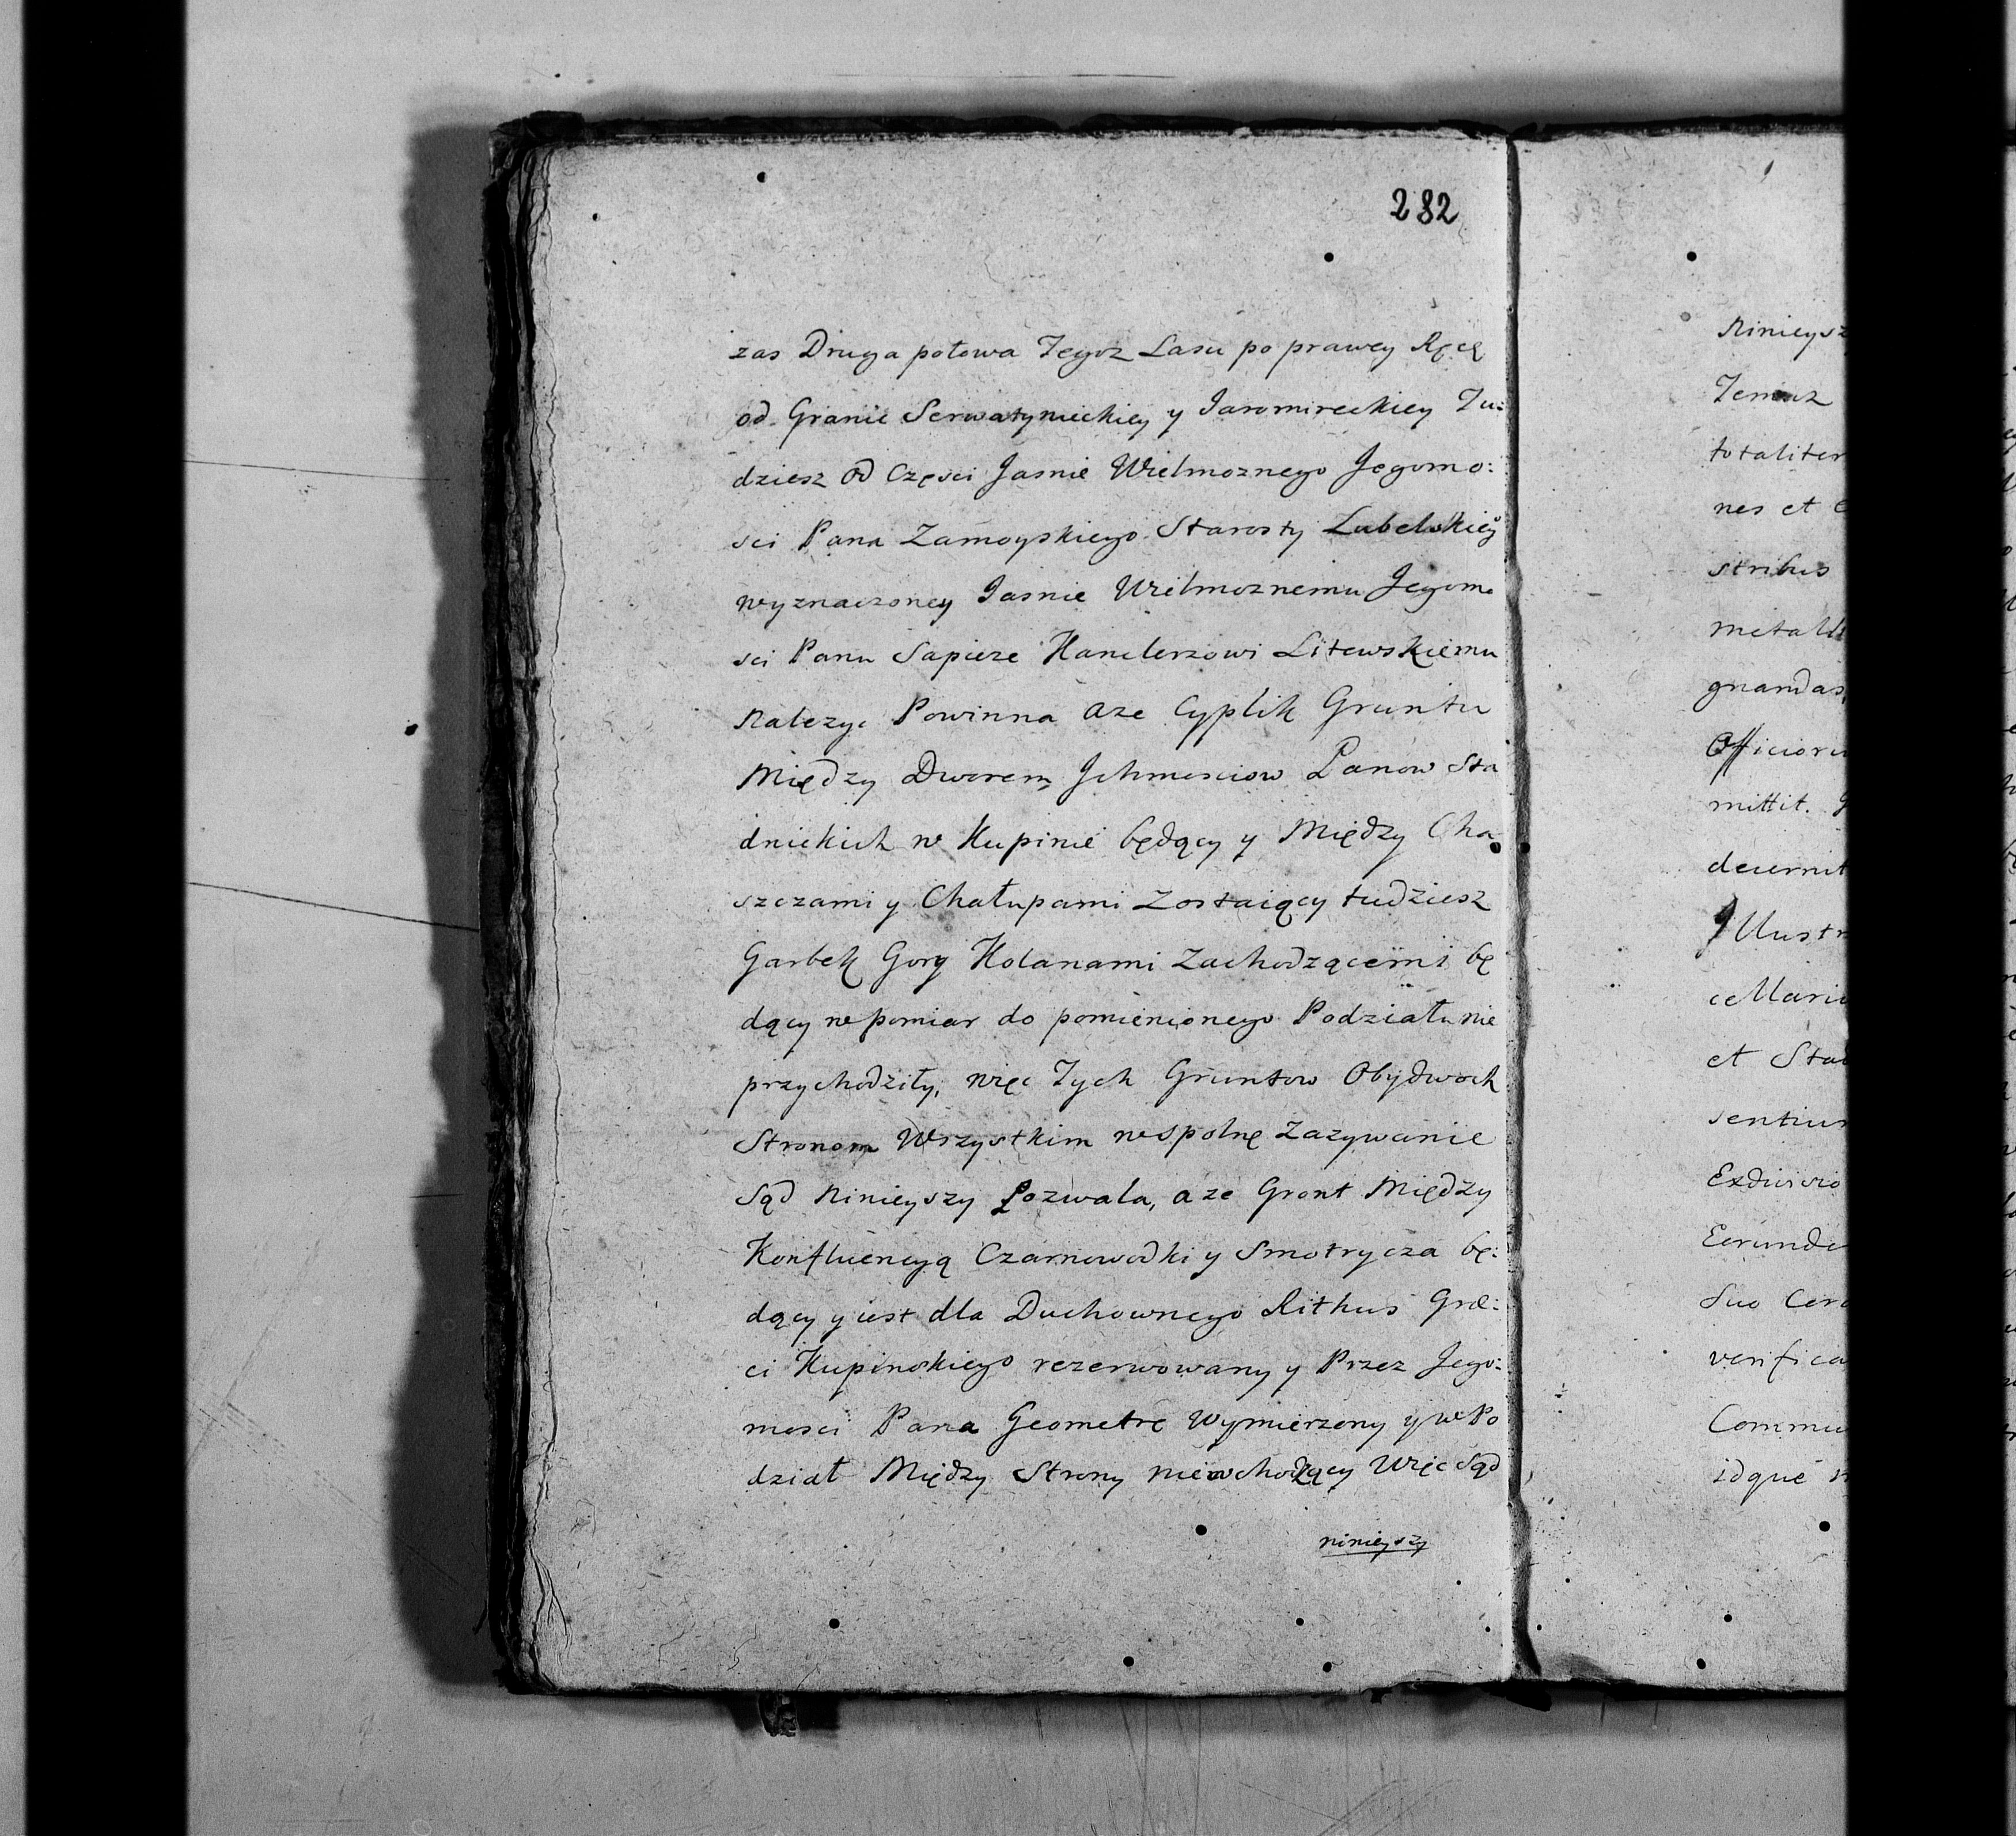 282
zas Druga połowa Tegoz Lasu po prawey Ręcę
od Granic Serwatynieckiey y Jaromireckiey Tu:
dziesz od Częsci Jasnie Wielmoznego Jegomo:
sci Pana Zamoyskiego Starosty Lubelskieg°
wyznaczoney Jasnie Wielmoznemu Jegomo
sci Panu Sapieze Kanclerzowi Litewskiemu
Nalezyc Powinna aze Cyplik Gruntu
Między Dworem Ichmosciow Panow Sta
dnickich w Kupinie będący y Między Cha
szczami y Chałupami Zostaiący tudziesz
Garbek Gory Kolanami Zachodzącemi bę
dący w pomiar do pomienionego Podziału nie
przychodziły, więc Tych Gruntow Obydwoch
Stronom Wszystkim wspolnę Zazywanie
Sąd Ninieyszy Pozwala, a ze Gront Między
Konfluencyą Czarnowodki y Smotrycza bę:
dący y iest dla Duchownego Rithus Græ:
ci Kupinskiego rezerwowany y Przez Jego:
mosci Pana Geometrę Wymierzony y w Po
dział Między Strony niewchodzący Więc Sąd
ninieyszy
Ninieysz
Temuz
totaliter
nes et
stribus
metal
gnandas
Officior
mittit.
decernit
Illustr
ce Mari
et Sta
sentiu
Exdivisio
Eerunde
Suo Cer
verifica
Commu
idque